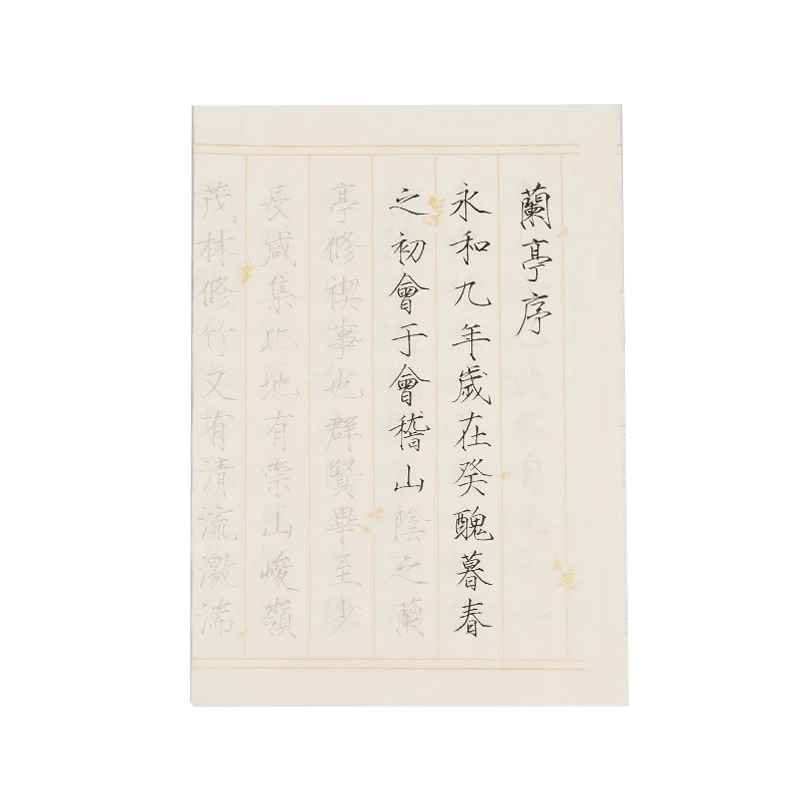 蘭亭序
永和九年歲在癸醜暮春
之初會于會稽山陰之蘭
亭修禊事也群賢畢至少
長鹹集此地有崇山峻嶺
茂林修竹又有清流激湍